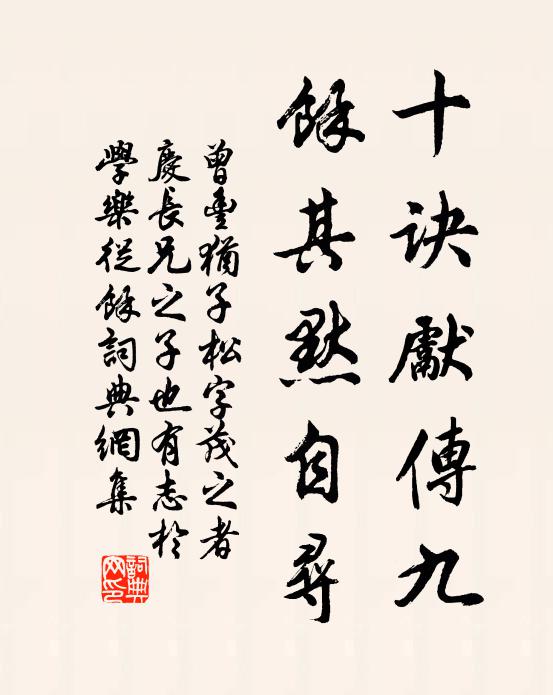 十訣獻傳九
餘其默自尋
曾豊猶子松字茂之者
慶長兄之子也有志於
學樂從餘詞典網集
詞典网印